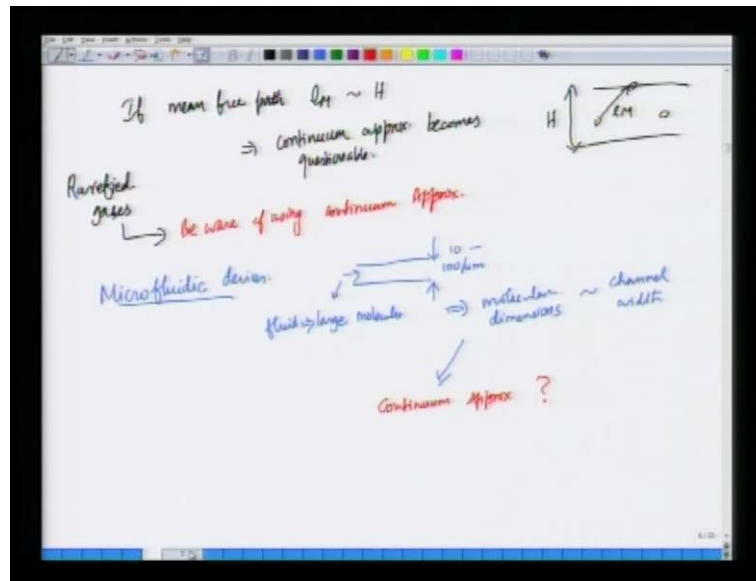 If mean free path lM ~ H
⇒ continuum approx. becomes
questionable.
H
lM
Rarefied
gases
Be ware of using continuum Approx.
Microfluidic devices.
10 –
100 μm
fluid ⇒ large molecules
⇒ molecular
dimensions
~ channel
width
Continuum Approx ?